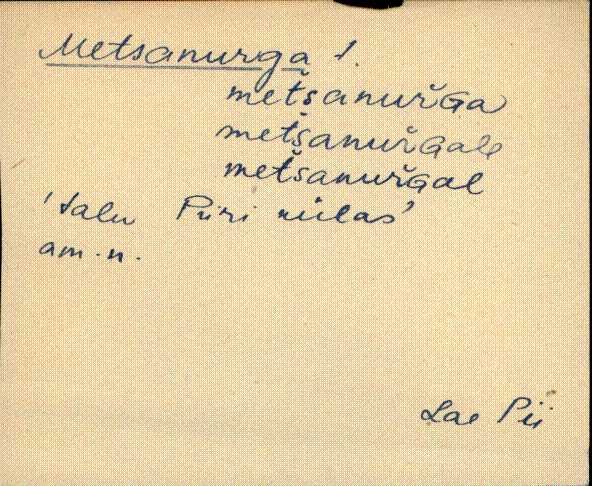 Metsanurga 1.
metšanuřGa
metšanuřGale
metšanuřGal
'talu Püri külas'
am. n.
Lae Pii